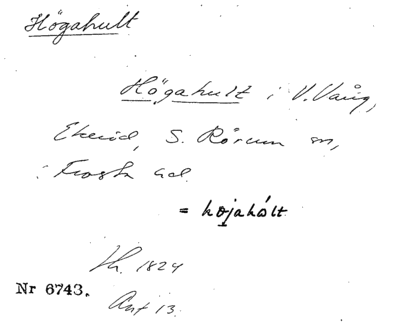 Högahult
Högahult i V. Vång,
Ekerid, S. Rörum sn,
Frosta hd
= hojahólt
Lh. 1824
Nr 6743.
Ant 13.